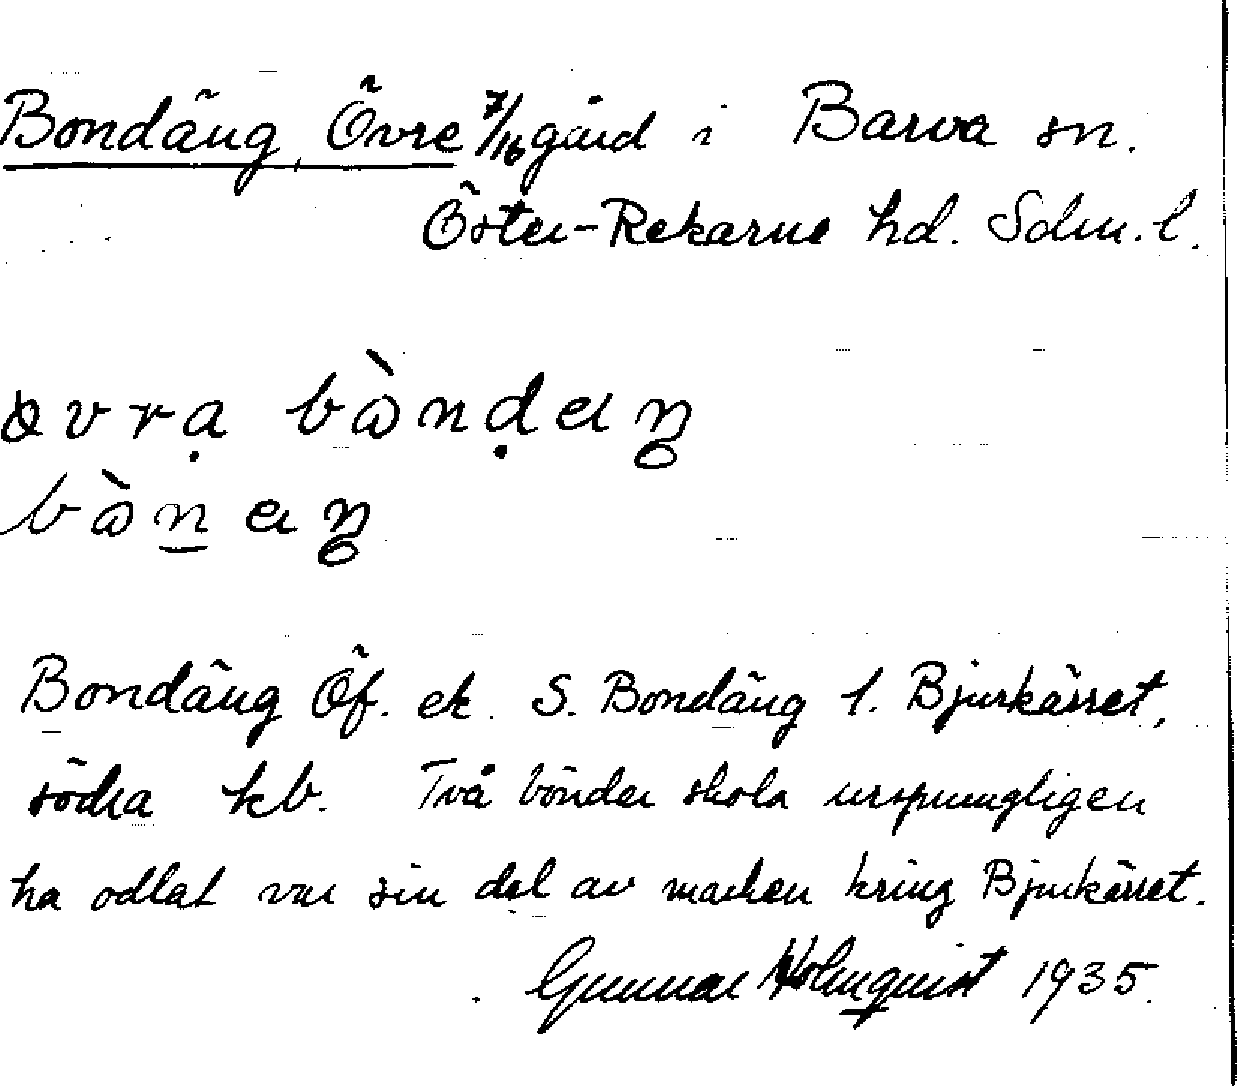 Bondäng, Övre 7/16 gård i Barva sn.
Öster-Rekarne hd. Södm. l.
övrạ bònḍäŋ
bòn̲äŋ
Bondäng Öf. ek. S. Bondäng l. Bjurkärret,
södra kb. Två bönder skola ursprungligen
ha odlat var sin del av marken kring Bjurkärret.
Gunnar Holmquist 1935.